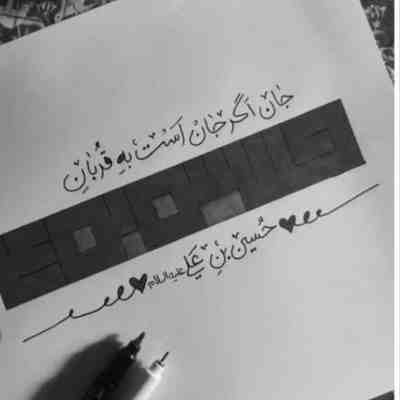 جان اَگر جان اَست بِه قُربانِ
حُسین بنِ عَلی علیه السلام